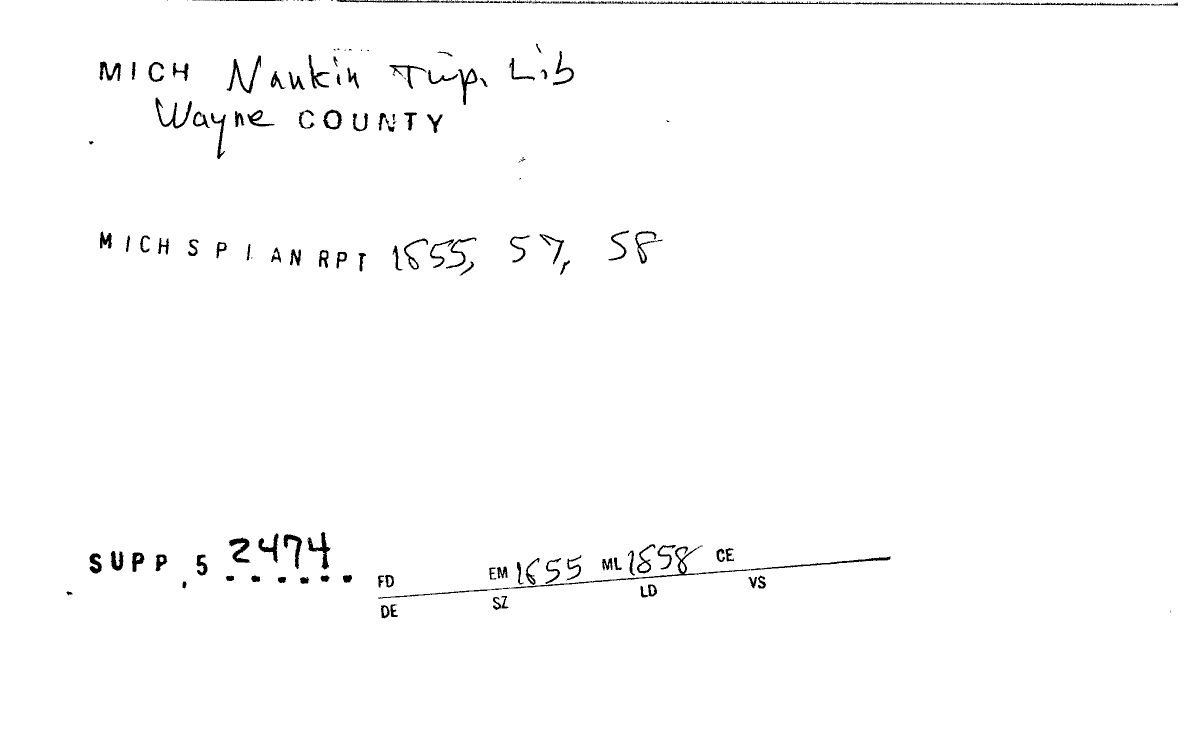 MICH Nankin Twp. Lib
Wayne COUNTY
MICH S P I AN RPT 1855, 57, 58
SUPP .5 2474
FD EM 1855 ML 1858 CE
DE SZ LD VS